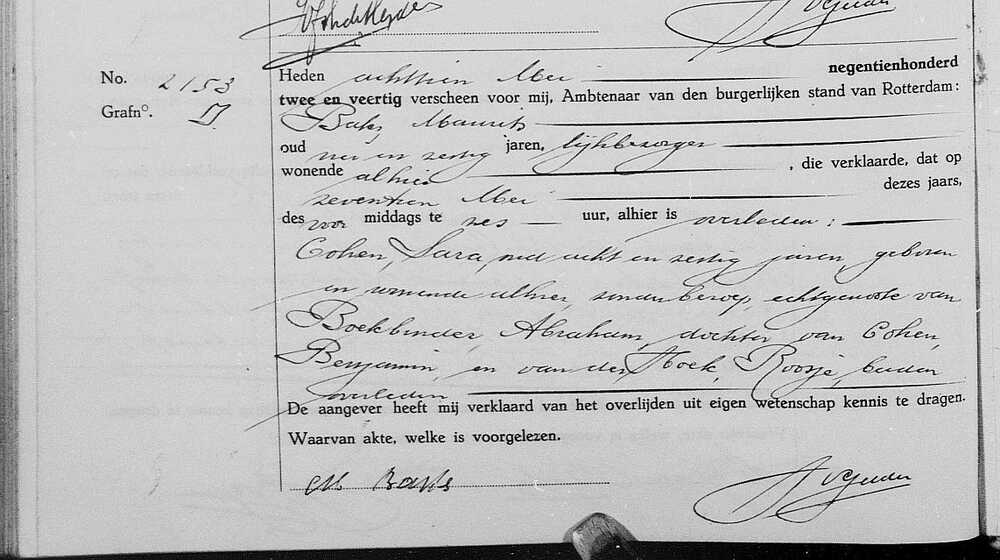 No. 2153
Grafnº. D.
Heden achttien Mei negentienhonderd
twee en veertig verscheen voor mij, Ambtenaar van den burgerlijken stand van Rotterdam:
Baks Maurits
oud en zestig jaren, lijkbezorger
wonende alhier, die verklaarde, dat op
zeventien Mei dezes jaars,
des voor middags te zes uur, alhier is overleden:
Cohen, Sara, oud acht en zestig jaren, geboren
en wonende alhier, zonder beroep, echtgenoote van
Boekbinder, Abraham, dochter van Cohen,
Benjamin, en van der Hoek, Roosje, beiden
overleden
De aangever heeft mij verklaard van het overlijden uit eigen wetenschap kennis te dragen.
Waarvan akte, welke is voorgelezen.
M Baks